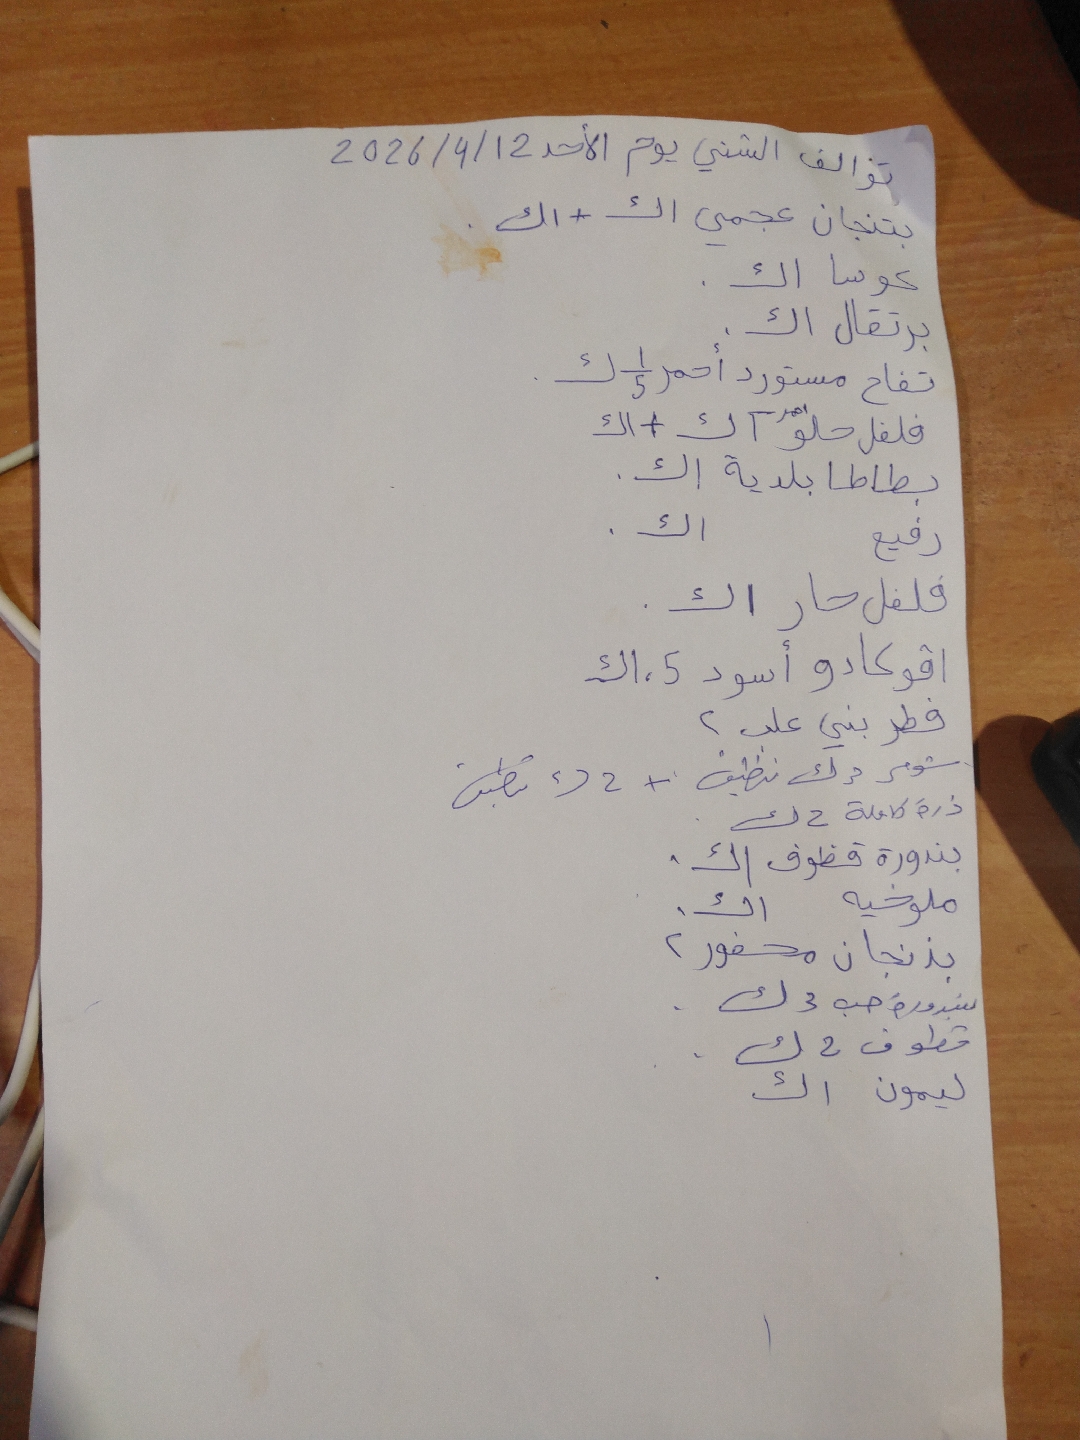 توالف الشني يوم الأحد 2026/4/12
بتنجان عجمي 1ك + 1ك .
كوسا 1ك .
برتقال 1ك .
تفاح مستورد أحمر 1/5 ك .
فلفل حلو أحمر 1ك + 1ك
بطاطا بلدية 1ك .
رفيع 1ك .
فلفل حار 1ك .
افوكادو أسود 1،5ك
فطر بني علب ٢
3ك تنظيف + 2ك تنظيف
ذرة كاملة 2ك .
بندورة قطوف 1ك .
ملوخيه 1ك .
بذنجان محفور ٢
بندورة حب 3ك .
قطوف 2ك .
ليمون 1ك
1